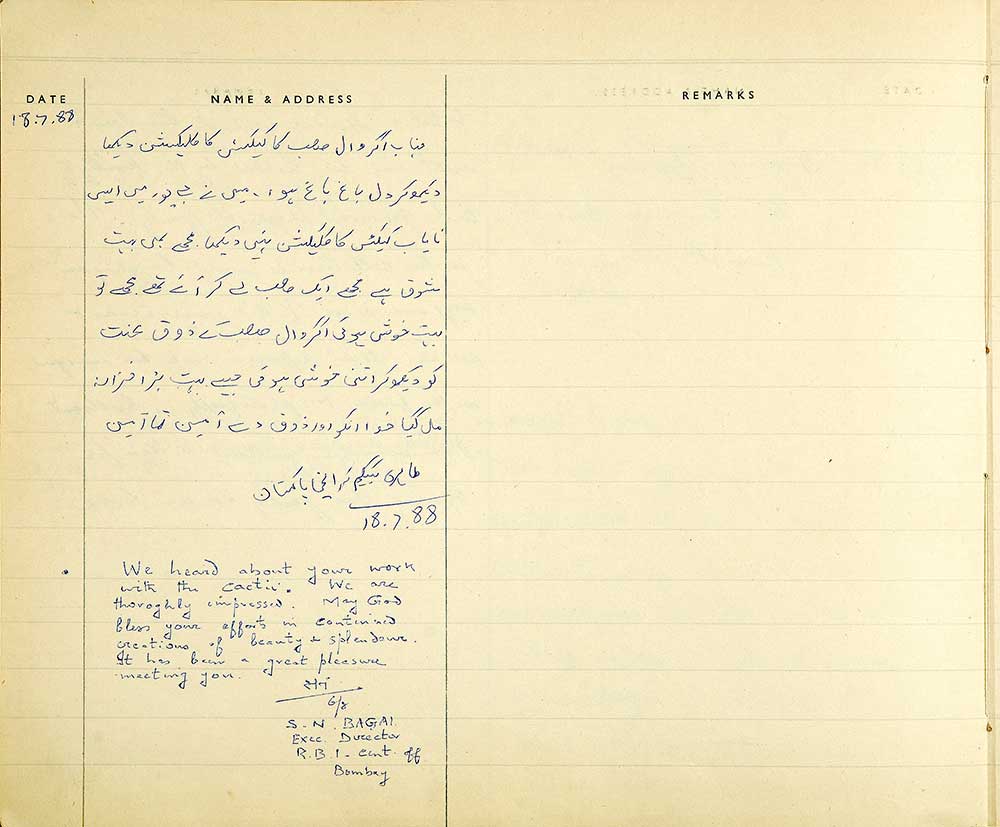 DATE
NAME & ADDRESS
REMARKS
18.7.88
جناب اگروال صاحب کا کیکٹس کا کلیکشن دیکھا
دیکھ کر دل باغ باغ ہوا۔ میں نے جے پور میں ایسی
نایاب کیکٹس کا کلیکشن نہیں دیکھا۔ مجھے بھی بہت
شوق ہے مجھے ایک صاحب لے کر آئے تھے مجھے تو
بہت خوشی ہوئی اگروال صاحب کے ذوق محنت
کو دیکھ کر اتنی خوشی ہوئی جیسے بہت بڑا خزانہ
مل گیا خدا انکو اور ذوق دے آمین ثما آمین
بیگم کراچی پاکستان
18.7.88
We heard about your work
with the cactii. We are
thoroghly impressed. May God
bless your efforts in continued
creations of beauty & splendour.
It has been a great pleasure
meeting you.
S. N. BAGAI
Exec. Director
R.B.I. Cent. Off
Bombay